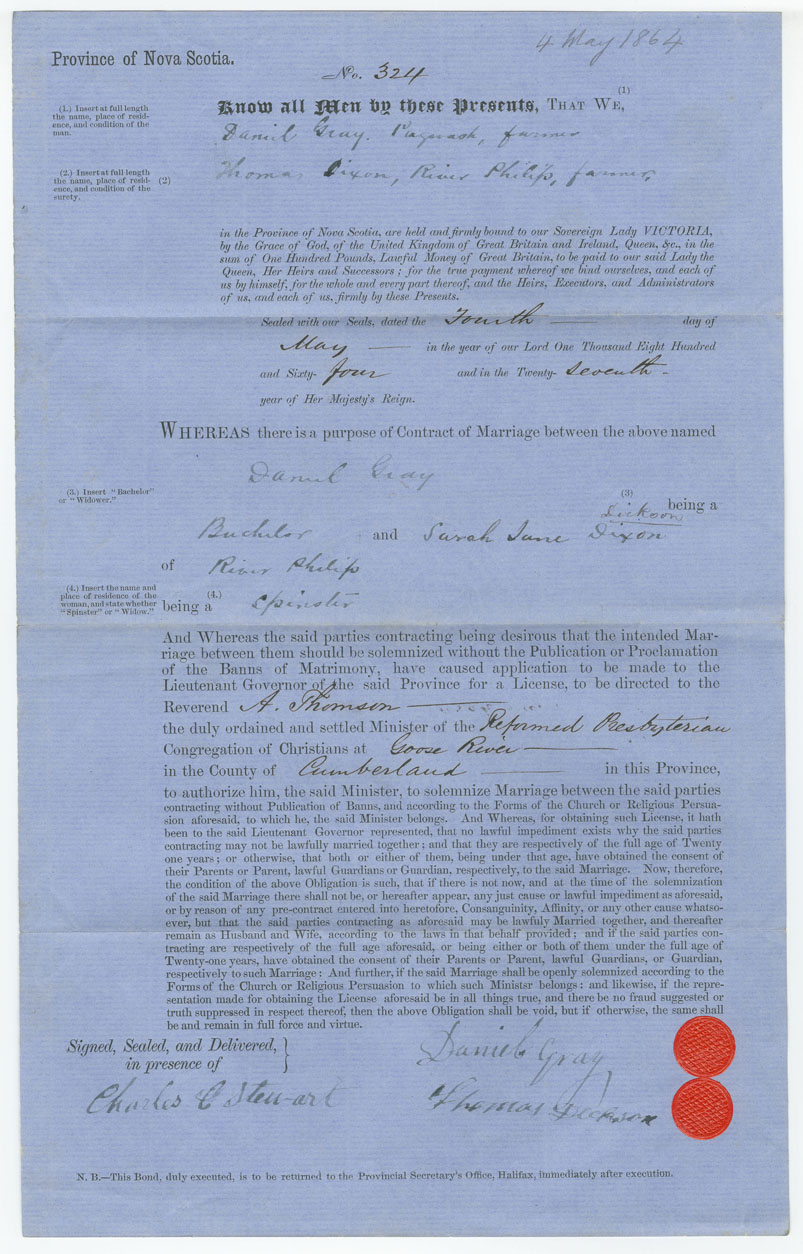 4 May 1864
Province of Nova Scotia.
No. 324
(1)
Know all Men by these Presents, THAT WE,
(1.) Insert at full length
the name, place of resid-
ence, and condition of the
man.
Daniel Gray. Pugwash, farmer
(2.) Insert at full length
the name, place of resid-
ence, and condition of the
surety.
(2)
Thomas Dixon, River Philip, farmer,
in the Province of Nova Scotia, are held and firmly bound to our Sovereign Lady VICTORIA,
by the Grace of God, of the United Kingdom of Great Britain and Ireland, Queen, &c., in the
sum of One Hundred Pounds, Lawful Money of Great Britain, to be paid to our said Lady the
Queen, Her Heirs and Successors ; for the true payment whereof we bind ourselves, and each of
us by himself, for the whole and every part thereof, and the Heirs, Executors, and Administrators
of us, and each of us, firmly by these Presents.
Sealed with our Seals, dated the Fourth day of
May in the year of our Lord One Thousand Eight Hundred
and Sixty- four and in the Twenty- Seventh -
year of Her Majesty's Reign.
WHEREAS there is a purpose of Contract of Marriage between the above named
Daniel Gray
(3.) Insert "Bachelor"
or "Widower."
(3)
being a
Dickson
Bachelor and Sarah Jane Dixon
of River Philip
(4.) Insert the name and
place of residence of the
woman, and state whether
"Spinster" or "Widow."
(4.)
being a Spinster
And Whereas the said parties contracting being desirous that the intended Mar-
riage between them should be solemnized without the Publication or Proclamation
of the Banns of Matrimony, have caused application to be made to the
Lieutenant Governor of the said Province for a License, to be directed to the
Reverend A. Thomson
the duly ordained and settled Minister of the Reformed Presbyterian
Congregation of Christians at Goose River
in the County of Cumberland in this Province,
to authorize him, the said Minister, to solemnize Marriage between the said parties
contracting without Publication of Banns, and according to the Forms of the Church or Religious Persua-
sion aforesaid, to which he, the said Minister belongs. And Whereas, for obtaining such License, it hath
been to the said Lieutenant Governor represented, that no lawful impediment exists why the said parties
contracting may not be lawfully married together ; and that they are respectively of the full age of Twenty
one years ; or otherwise, that both or either of them, being under that age, have obtained the consent of
their Parents or Parent, lawful Guardians or Guardian, respectively, to the said Marriage. Now, therefore,
the condition of the above Obligation is such, that if there is not now, and at the time of the solemnization
of the said Marriage there shall not be, or hereafter appear, any just cause or lawful impediment as aforesaid,
or by reason of any pre-contract entered into heretofore, Consanguinity, Affinity, or any other cause whatso-
ever, but that the said parties contracting as aforesaid may be lawfuly Married together, and thereafter
remain as Husband and Wife, according to the laws in that behalf provided ; and if the said parties con-
tracting are respectively of the full age aforesaid, or being either or both of them under the full age of
Twenty-one years, have obtained the consent of their Parents or Parent, lawful Guardians, or Guardian,
respectively to such Marriage : And further, if the said Marriage shall be openly solemnized according to the
Forms of the Church or Religious Persuasion to which such Minister belongs : and likewise, if the repre-
sentation made for obtaining the License aforesaid be in all things true, and there be no fraud suggested or
truth suppressed in respect thereof, then the above Obligation shall be void, but if otherwise, the same shall
be and remain in full force and virtue.
Signed, Sealed, and Delivered,
in presence of
Daniel Gray
Charles C Stewart
Thomas Dickson
N. B.—This Bond, duly executed, is to be returned to the Provincial Secretary's Office, Halifax, immediately after execution.